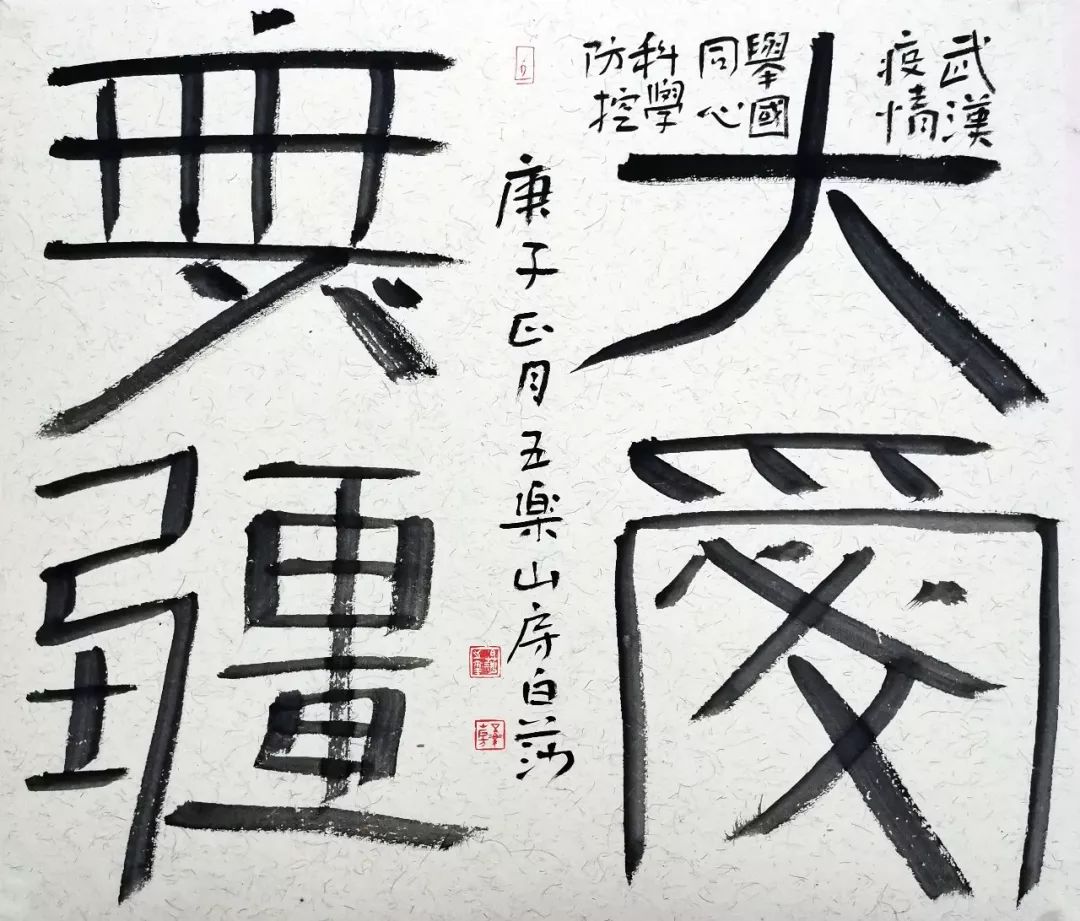 武漢
疫情
舉國
同心
科學
防控
大愛
庚子正月五楽山房白
無疆